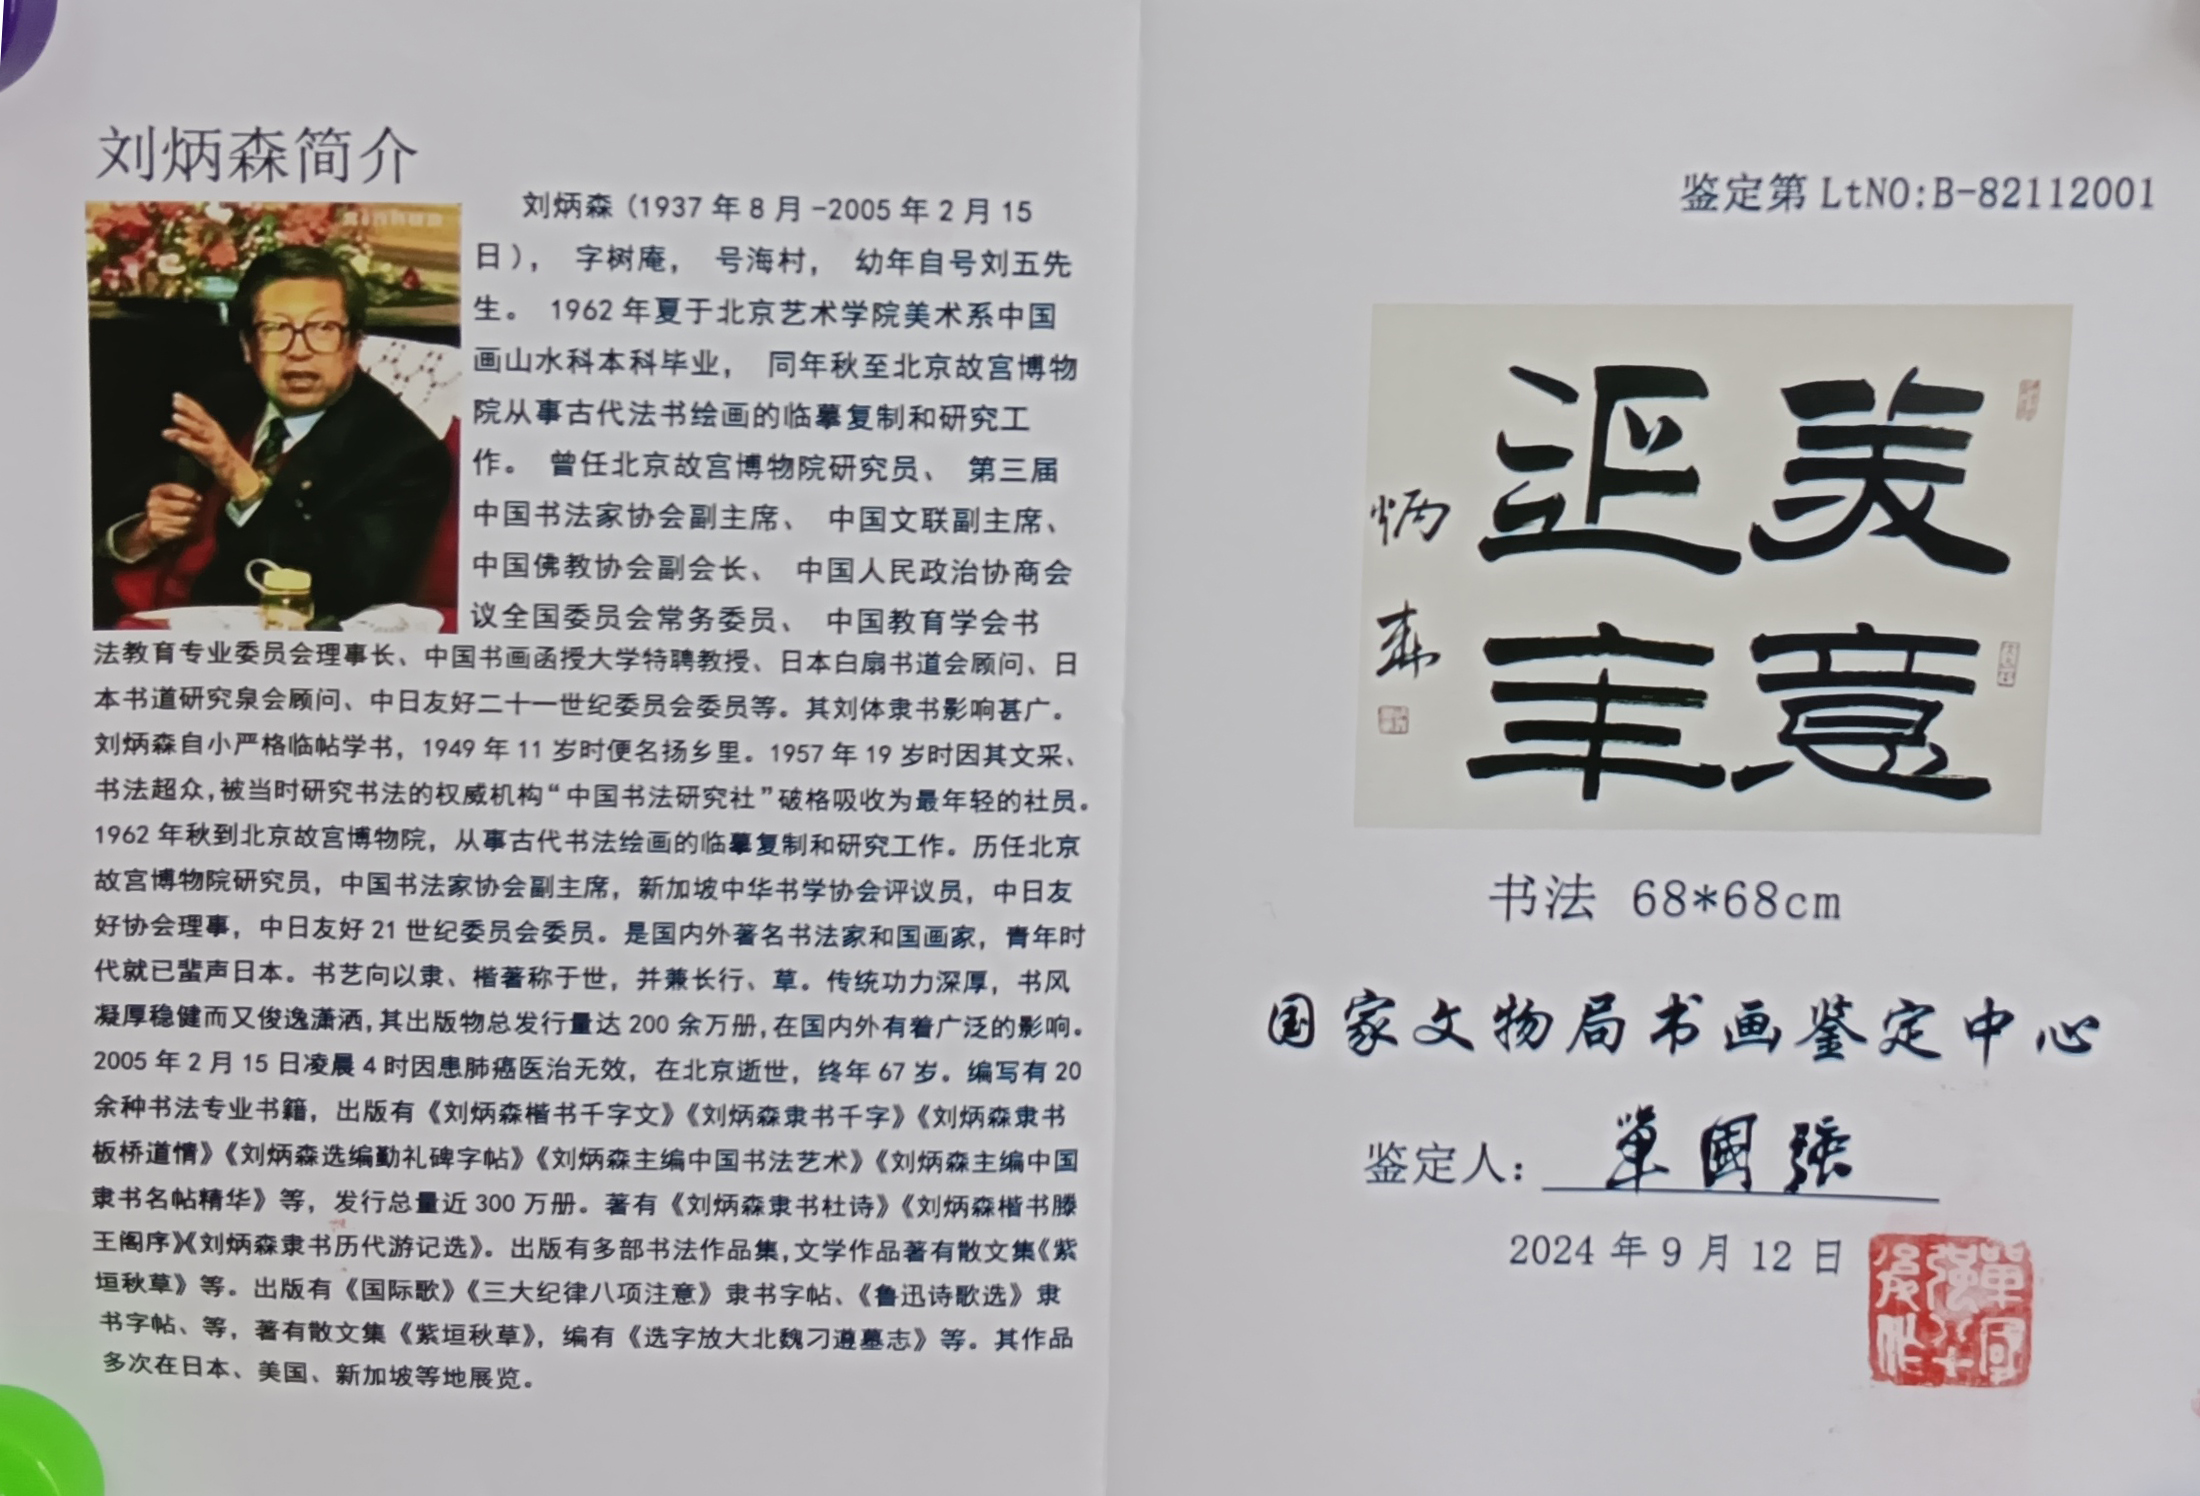 刘炳森简介
刘炳森（1937年8月-2005年2月15
日），字树庵，号海村，幼年自号刘五先
生。1962年夏于北京艺术学院美术系中国
画山水科本科毕业，同年秋至北京故宫博物
院从事古代法书绘画的临摹复制和研究工
作。曾任北京故宫博物院研究员、第三届
中国书法家协会副主席、中国文联副主席、
中国佛教协会副会长、中国人民政治协商会
议全国委员会常务委员、中国教育学会书
法教育专业委员会理事长、中国书画函授大学特聘教授、日本白扇书道会顾问、日
本书道研究泉会顾问、中日友好二十一世纪委员会委员等。其刘体隶书影响甚广。
刘炳森自小严格临帖学书，1949年11岁时便名扬乡里。1957年19岁时因其文采、
书法超众,被当时研究书法的权威机构“中国书法研究社”破格吸收为最年轻的社员。
1962年秋到北京故宫博物院，从事古代书法绘画的临摹复制和研究工作。历任北京
故宫博物院研究员，中国书法家协会副主席，新加坡中华书学协会评议员，中日友
好协会理事，中日友好21世纪委员会委员。是国内外著名书法家和国画家，青年时
代就已蜚声日本。书艺向以隶、楷著称于世，并兼长行、草。传统功力深厚，书风
凝厚稳健而又俊逸潇洒,其出版物总发行量达200余万册,在国内外有着广泛的影响。
2005年2月15日凌晨4时因患肺癌医治无效，在北京逝世，终年67岁。编写有20
余种书法专业书籍，出版有《刘炳森楷书千字文》《刘炳森隶书千字》《刘炳森隶书
板桥道情》《刘炳森选编勤礼碑字帖》《刘炳森主编中国书法艺术》《刘炳森主编中国
隶书名帖精华》等，发行总量近300万册。著有《刘炳森隶书杜诗》《刘炳森楷书滕
王阁序》《刘炳森隶书历代游记选》。出版有多部书法作品集,文学作品著有散文集《紫
垣秋草》等。出版有《国际歌》《三大纪律八项注意》隶书字帖、《鲁迅诗歌选》隶
书字帖、等，著有散文集《紫垣秋草》，编有《选字放大北魏刁遵墓志》等。其作品
多次在日本、美国、新加坡等地展览。
鉴定第LtNO:B-82112001
美意
延年
炳森
书法 68*68cm
国家文物局书画鉴定中心
鉴定人：單國強
2024年9月12日